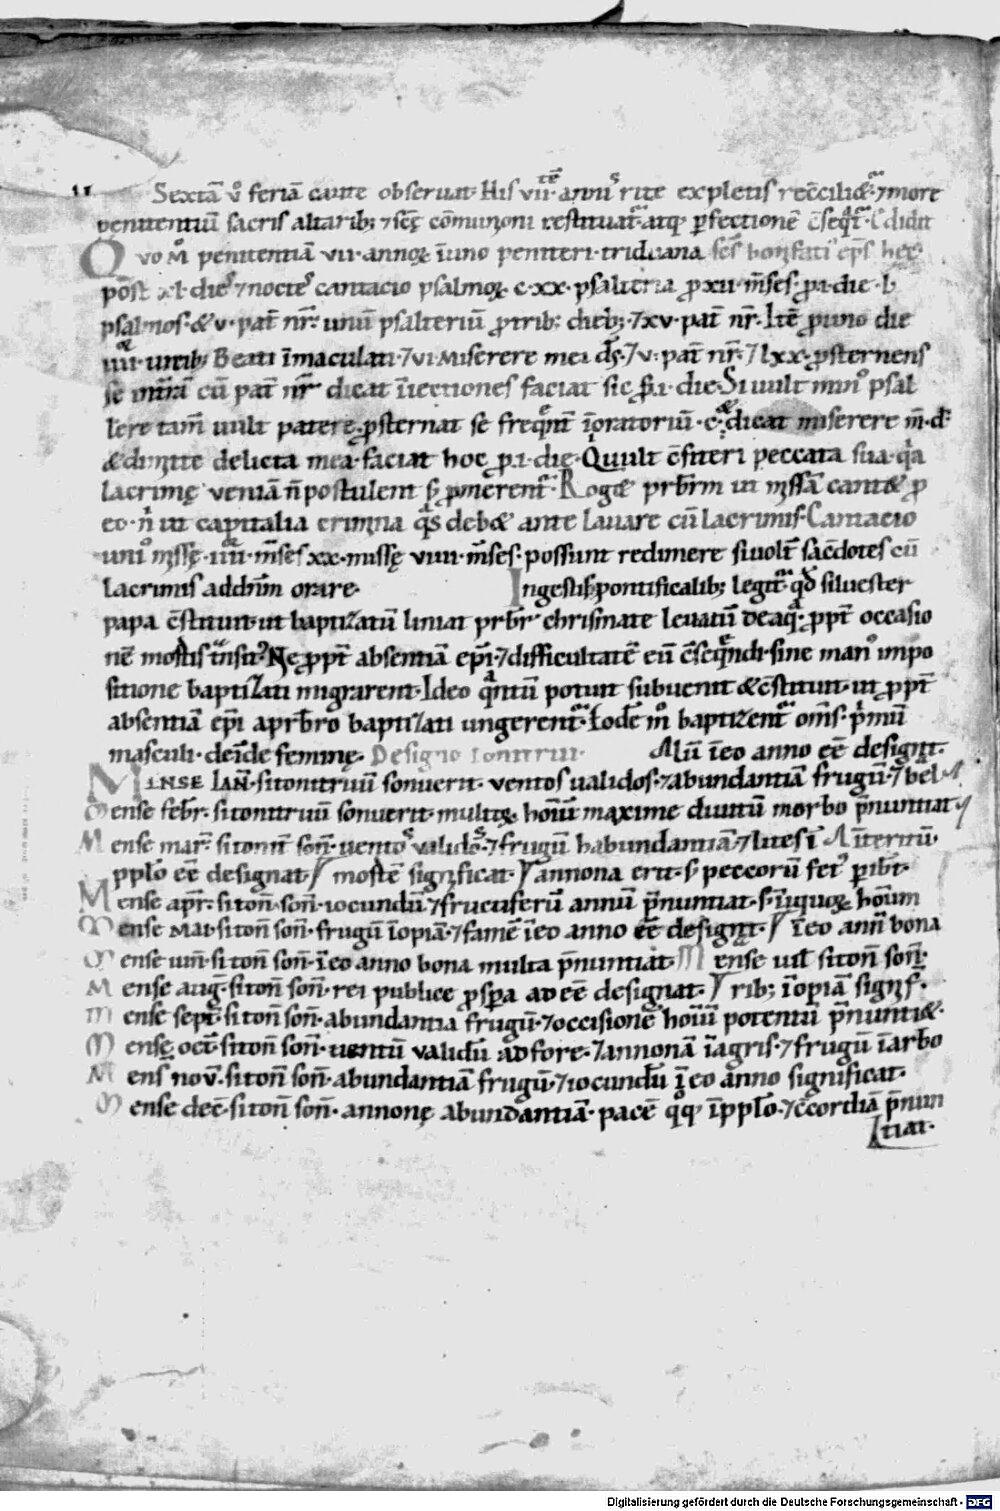 Sextā v̊ feriā caute obseruat· His vii· annis rite expletis recc̄iliet᷒· ⁊ more
penitentiū sacris altarib; ⁊ sc̄ę cōmunioni restituat᷒ atq; ꝑfectionē c̄seq̄t᷒·
Quom̊ penitentiā vii· annoꝝ ī uno peniteri· triduana sc̄s bonifatī ep̄s
pōst xl· dies ⁊ noctes cantacio psalmoꝝ c·xx· psalteria ꝓ xii· m̄ses· ꝓ i· die· l·
psalmos· & v· pat̄ nr̄· unū psalteriū ꝓ trib; dieb;· ⁊ xv· pat̄ nr̄· Itē ꝓ uno die
Beati īmaculati· ⁊ vi· Miserere mei ds̄· ⁊ v· pat̄ nr̄· ⁊ lxx· ꝓsternens
se cū pat̄ nr̄ dicat faciat sic ꝓ· i· die· Si uult min᷒ psal
lere tam̄ uult patere· ꝓsternat se freq̄nt̄ ī oratoriū· dicat miserere m̄· d̄s
& dimitte delicta mea· faciat hoc ꝓ· i· die· Qui uult c̄fiteri peccata sua q̄a
lacrimę ueniā n̄ postulent s; ꝓmerent᷒· Roget prb̄rm ut missā cantet ꝓ
eo· n̄ ut capitalia crimina q̄s debet ante lauare cū lacrimis· Cantacio
uni᷒ missę· iiii· m̄ses xx· missę viiii· m̄ses· possunt redimere si uolt̄ sac̄dotes cū
lacrimis ad dnm̄ orare·
In gestis pontificalib; legit᷒· qd̄ siluester
papa c̄stituit· ut baptizatū liniat prb̄r chrismate leuatū de aq̄· ꝓpt̄ occasio
nē mortis t̄nsit᷒· Ne ꝓpt̄ absentiā ep̄i· ⁊ difficultatē eū c̄seq̄ndi· sine man᷒ impo
sitione baptizati migrarent· Ideo q̄ntū potuit subuenit & c̄stituit· ut ꝓpt̄
absentiā ep̄i a prb̄ro baptizati ungerent᷒· Eodē m̊ baptizent᷒ om̄s· p̄mū
masculi· deīde feminę· De signo tonitrui·
Aliū ī eo anno eē designat·
Mense Ian̄· si tonitruū sonuerit· uentos ualidos· ⁊ abundantiā frugū· ⁊ bellū
Mense febr̄· si tonitruū sonuerit· multoꝝ hoīum maxime diuitū morbo p̄nuntiat·
Mense mar̄· si tonit̄ son̄· uentos ualidos· ⁊ frugū habundantiā· ⁊ lites ī
pplo eē designat· mortē significat· annona erit· s; peccorū fet᷒ ꝑibit·
Mense apr̄· si ton̄· son̄· iocundū ⁊ fructiferū annū p̄nuntiat· s; īiquoꝝ hoīum
Mense Mai· si ton̄ son̄· frugū īopiā· ⁊ famē ī eo anno eē designat· ī eo anñ bona
Mense iun̄· si ton̄ son̄· ī eo anno bona multa p̄nuntiat· Mense iul̄ si ton̄ son̄·
Mense auḡ· si ton̄ son̄· rei publice ꝓspa adeē designat· īopiā signī·
Mense sept̄· si ton̄ son̄· abundantia frugū· ⁊ occisionē hoīum potentū p̄nuntiat·
Mense oct̄· si ton̄ son̄· uentū validū ad fore· ⁊ annonā ī agris· ⁊ frugū ī arbo
Mens nov̄· si ton̄ son̄· abundantiā frugū· ⁊ iocundū ī eo anno significat·
Mense dec̄· si ton̄ son̄· annonę abundantiā· pacē qq; ī pplo· ⁊ c̄cordiā p̄nun
tiat·
Digitalisierung gefördert durch die Deutsche Forschungsgemeinschaft - DFG